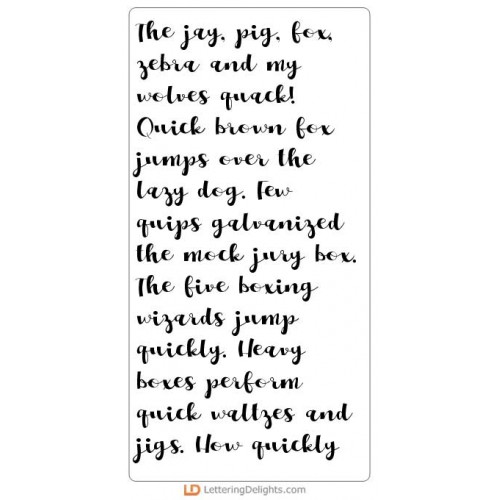 The jay, pig, fox,
zebra and my
wolves quack!
Quick brown fox
jumps over the
lazy dog. Few
quips galvanized
the mock jury box.
The five boxing
wizards jump
quickly. Heavy
boxes perform
quick waltzes and
jigs. How quickly
LD LetteringDelights.com